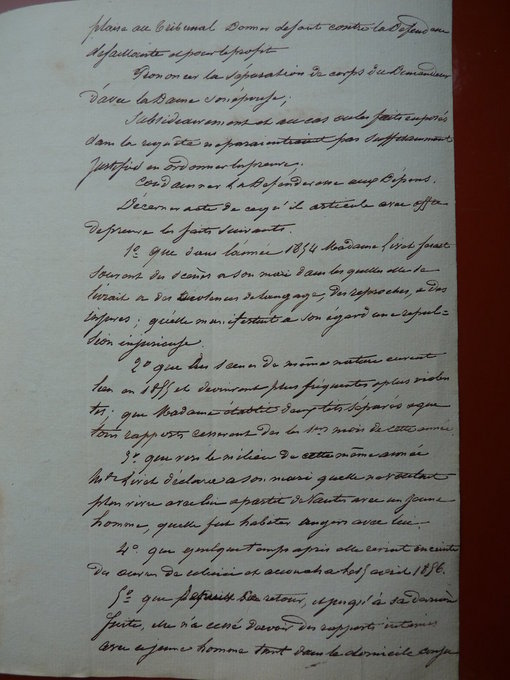 plaise au Tribunal Donner defaut contre la Défenderesse
defaillante et pour le profit
Prononcer la séparation de corps du Demandeur
d'avec la Dame son épouse;
Subsidiairement et au cas ou les faits exposés
dans la requête ne paraîtraient pas suffisamment
Justifiés en ordonner la preuve;
Condamner la Défenderesse aux Dépens.
Décerner acte de ce qu'il articule avec offre
de preuve les faits suivants.
1º que dans l'année 1854 Madame faisait
souvent des scènes a son mari dans lesquelles elle se
livrait a des violences de langage, des reproches, a des
injures; qu'elle manifestait a son égard une repul-
sion injurieuse.
2º que des scènes de même nature eurent
lieu en 1855 et devinrent plus fréquentes, plus violen-
tes; que Madame établit deux lits séparés et que
tous rapports cesserent des les 1ers mois de cette année.
3º que vers le milieu de cette même année
Mde déclara a son mari quelle ne voulait
plus vivre avec lui a partit de Nantes avec un jeune
homme, quelle fut habiter angers avec lui.
4º que quelque temps après elle revint enceinte
des œuvres de celui-ci et accoucha le 5 avril 1856.
5º que depuis son retour, et jusqu'à sa dernière
fuite, elle n'a cessé d'avoir des rapports intimes
avec ce jeune homme tant dans le domicile conju-